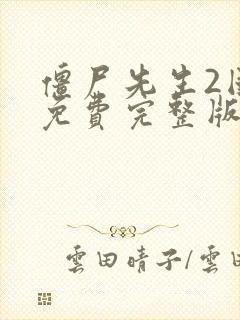 僵尸先生2
免費完整版
雲田晴子/雲田